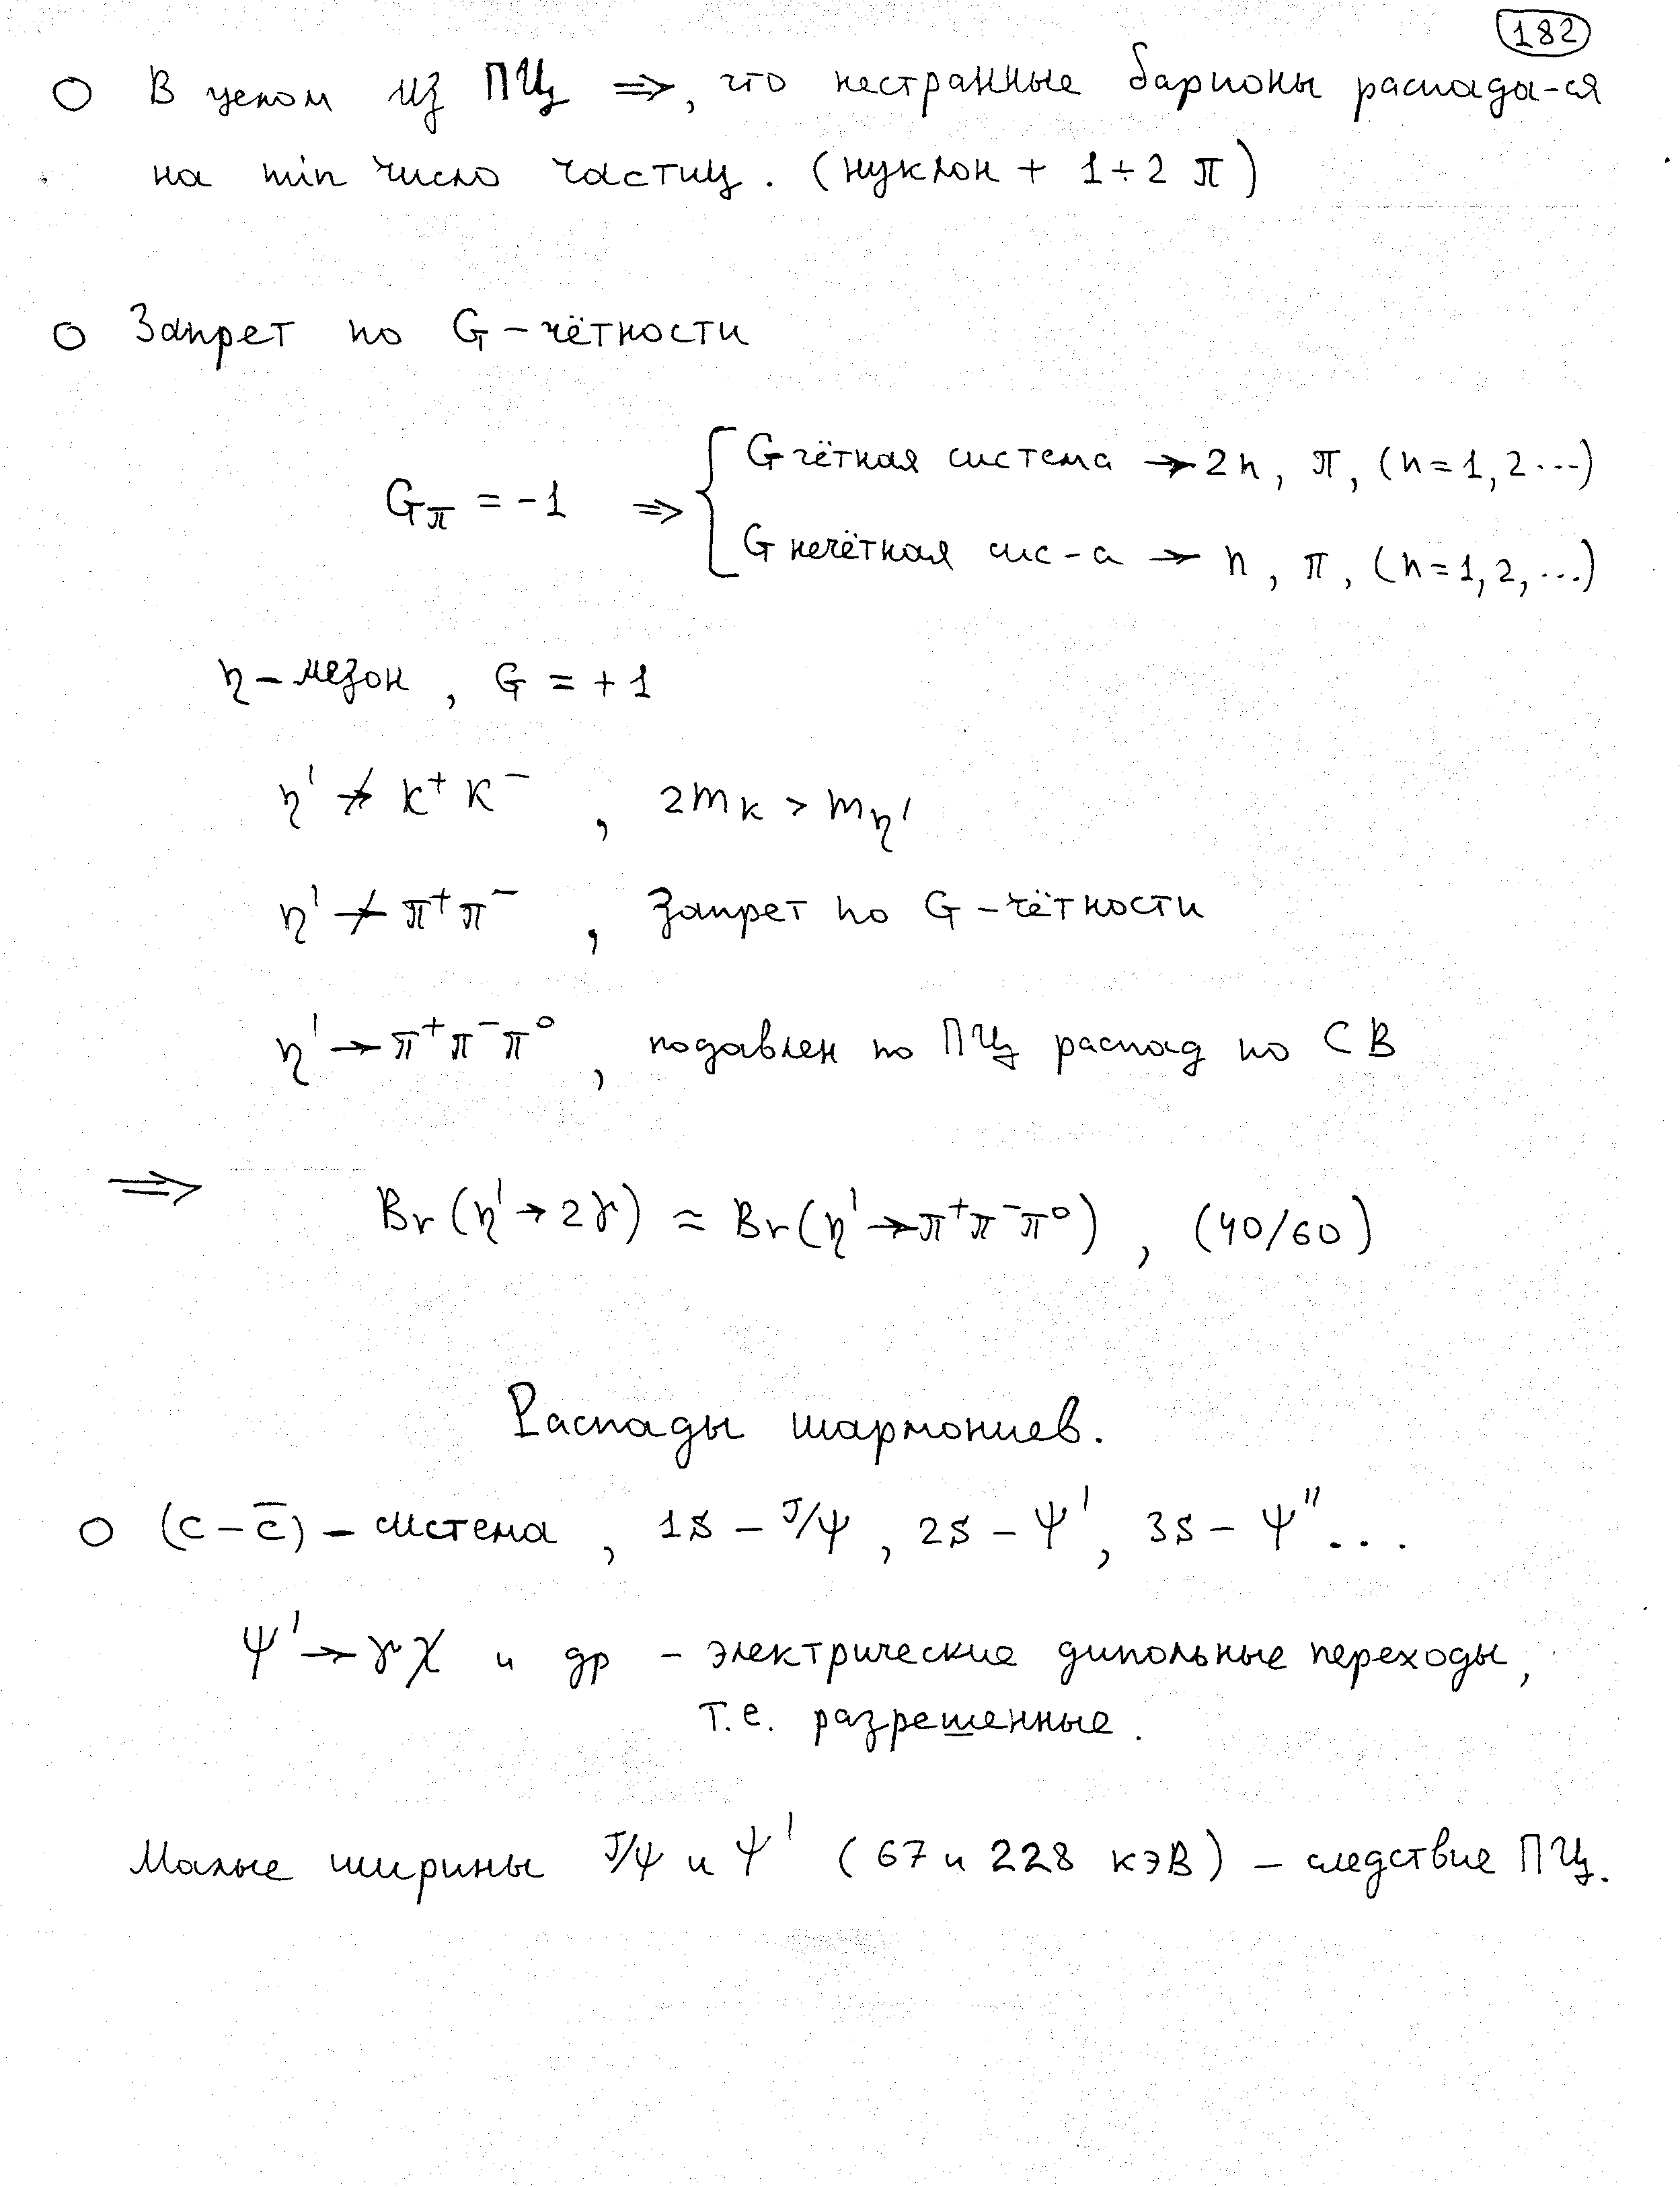 182
○ В целом из ПЦ ⇒, что нестранные барионы распада-ся
на min число частиц. (нуклон + 1÷2 π)
○ Запрет по G-чётности
G_π = -1 ⇒ { G чётная система → 2n, π, (n=1, 2...)
G нечётная сис-а → n, π, (n=1, 2, ...)
η-мезон, G = +1
η' ↛ K⁺K⁻, 2m_K > m_η'
η' ↛ π⁺π⁻, Запрет по G-чётности
η' → π⁺π⁻π⁰, подавлен по ПЦ распад по СВ
⇒ Br(η'→2γ) ≈ Br(η'→π⁺π⁻π⁰), (40/60)
Распады шармониев.
○ (c-c̄)-система, 1S – J/ψ, 2S – ψ', 3S – ψ''...
ψ' → γχ и др – электрические дипольные переходы,
т.е. разрешенные.
Малые ширины J/ψ и ψ' (67 и 228 кэВ) – следствие ПЦ.